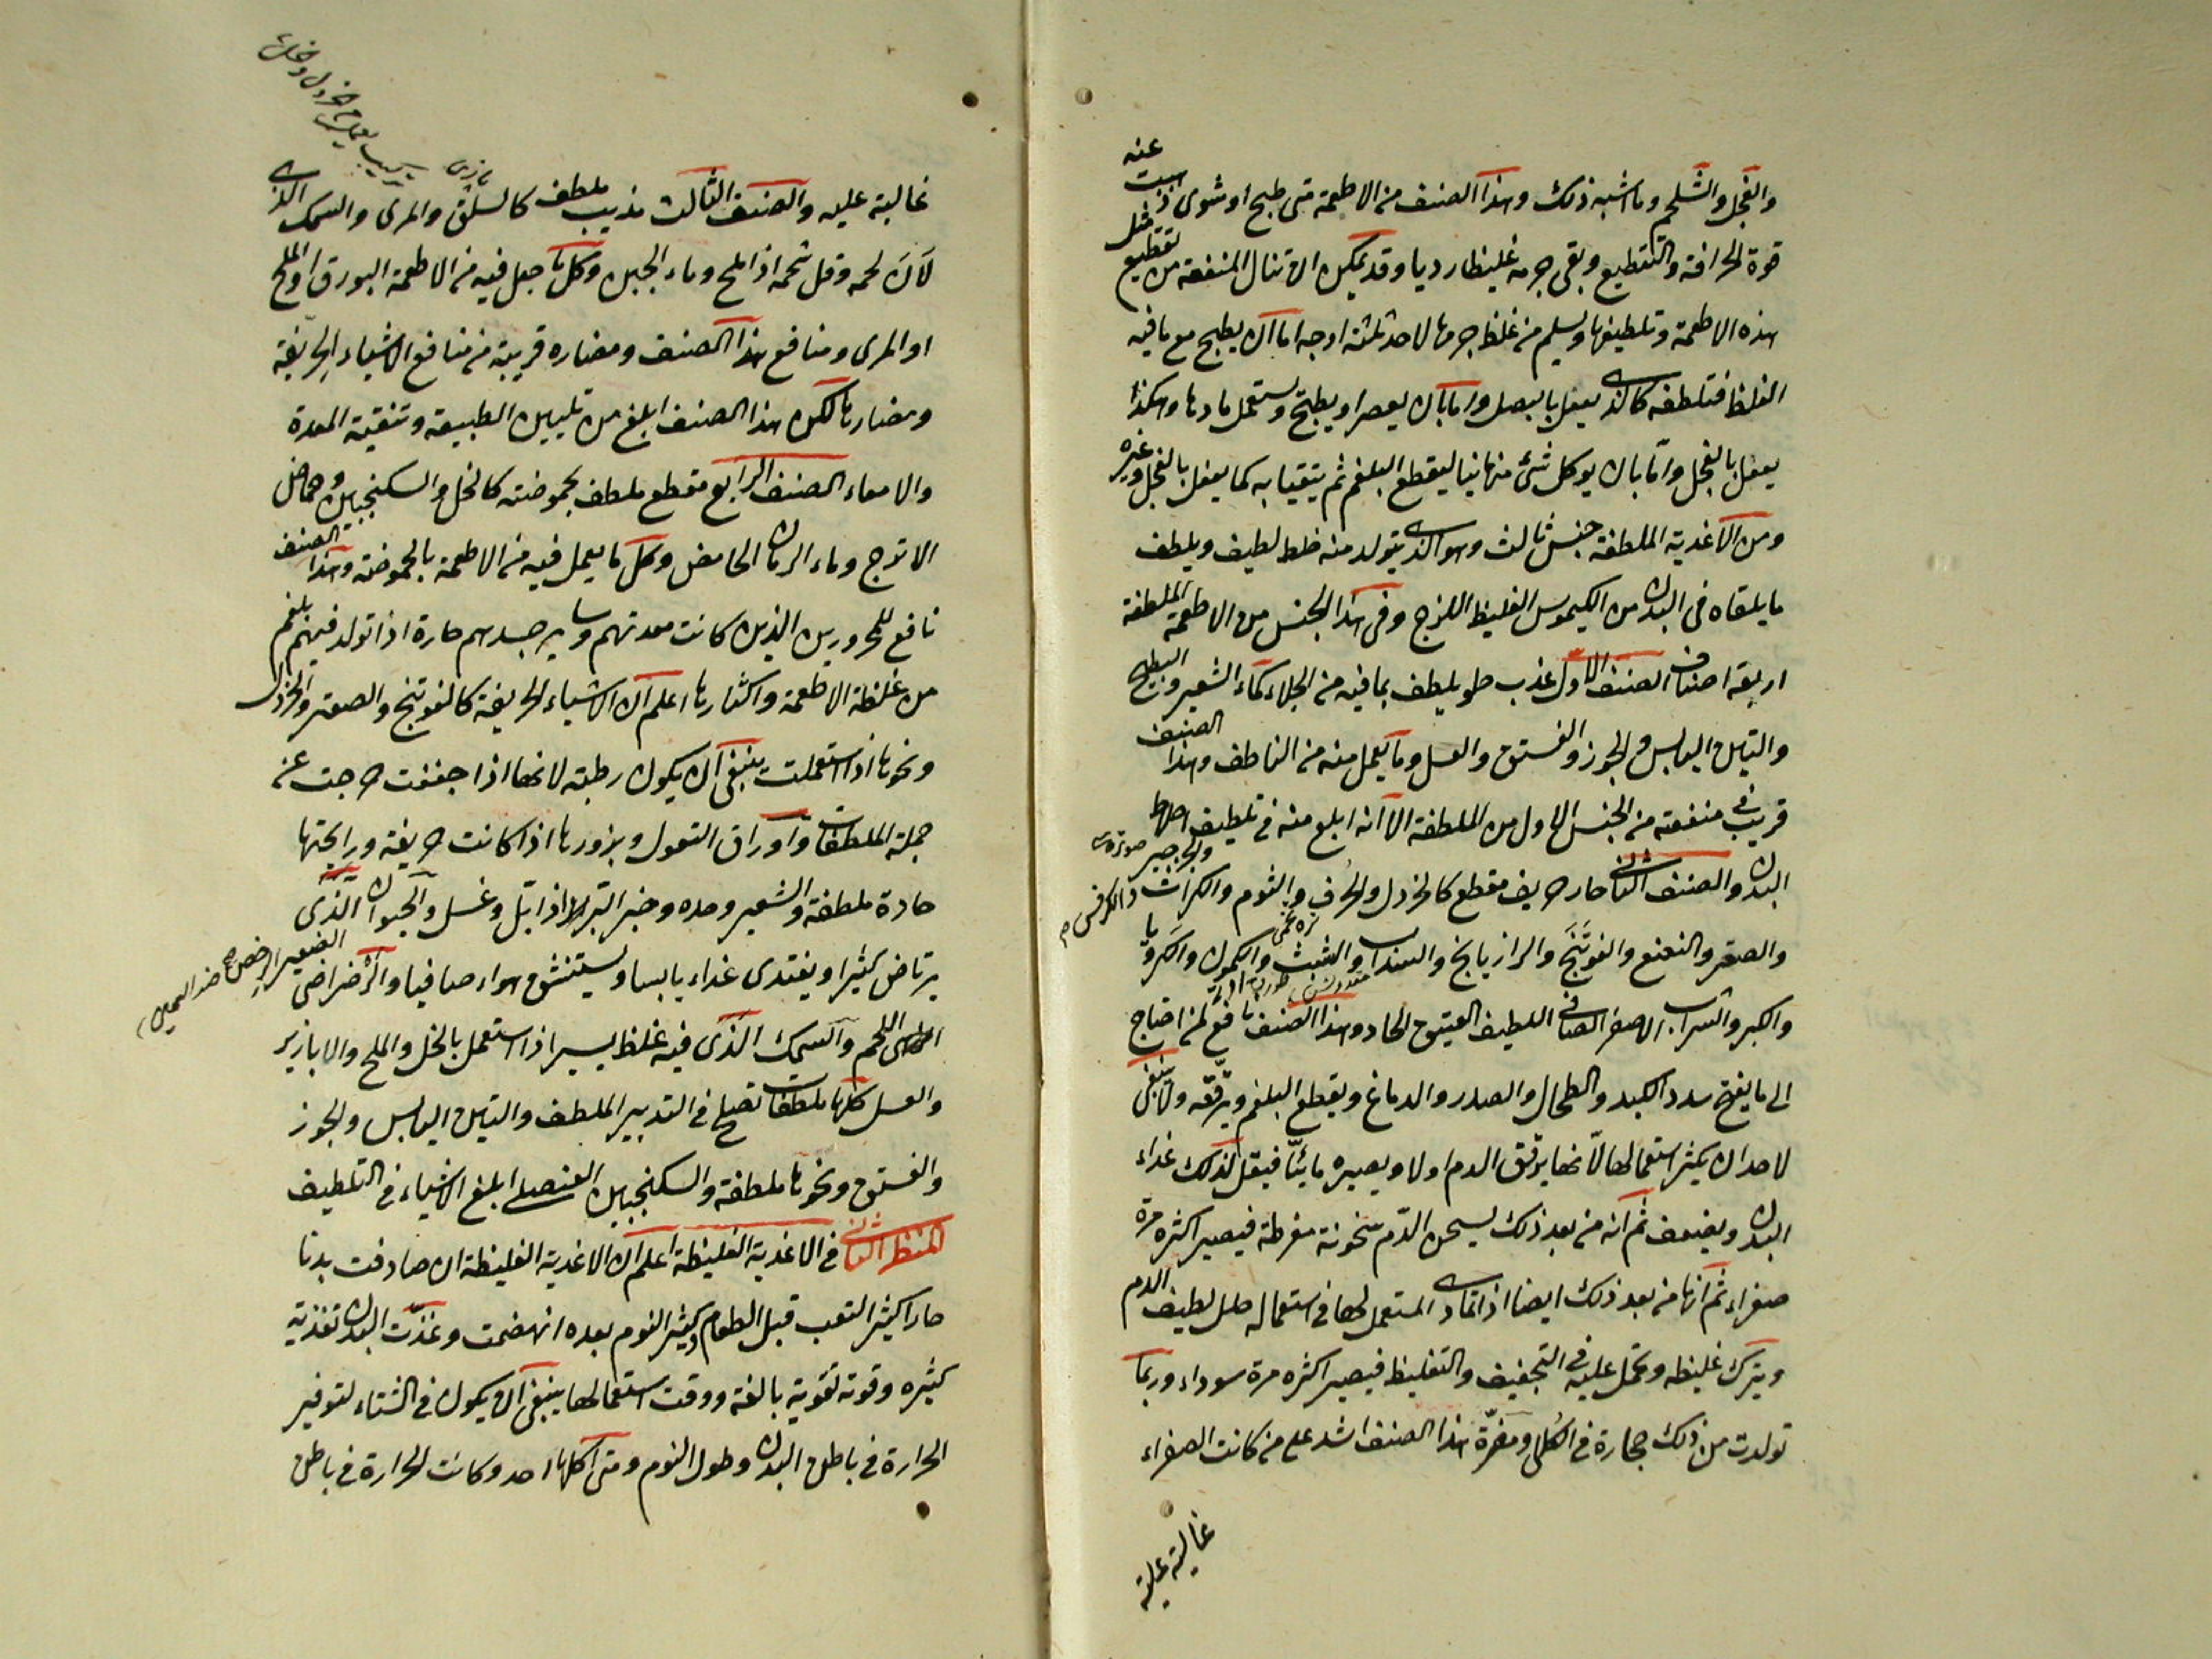 والفجل والشلجم وما اشبه ذلك وهذا الصنف من الاطعمة متى طبخ او شوى ذهبت عنه
قوة الحرافة والتقطيع وبقى جرمه غليظا رديا وقد يمكن ان تنال المنفعة من تقطيع مثل
هذه الاطعمة وتلطيفها ويسلم من غلظ جرمها لاحد ثلثة اوجه اما ان يطبخ مع ما فيه
الغلظ فتلطفه كالذى يفعل بالبصل واما بان يعصر او يطبخ ويستعمل ماءها وهكذا
يفعل بالفجل واما بان يوكل شئ منها نيا ليقطع البلغم ثم يتقيا به كما يفعل بالفجل وغيره
ومن الاغذية الملطفة جنس ثالث وهو الذى يتولد منه خلط لطيف ويلطف
ما يلقاه فى البدن من الكيموس الغليظ اللزج وفى هذا الجنس من الاطعمة الملطفة
اربعة اصناف الصنف الاول عذب حلو يلطف بما فيه من الجلاء كماء الشعير والبطيخ
والتين اليابس والجوز والفستق والعسل وما يعمل منه من الناطف وهذا الصنف
قريب فى منفعته من الجنس الاول من الملطفة الا انه ابلغ منه فى تلطيف اخلاط
البدن والصنف الثانى حار حريف مقطع كالخردل والحرف والثوم والكراث والكرفس والجرجير
والصعتر والنعنع والفوتنج والرازيانج والسداب والشبث والكمون والكرويا
والكبر والشراب الاصفر الصافى اللطيف العتيق الحاد وهذا الصنف نافع لمن احتاج
الى ما يفتح سدد الكبد والطحال والصدر والدماغ ويقطع البلغم ويرققه ولا ينبغى
لاحد ان يكثر استعمالها لانها يرقق الدم اولا ويصيره مائيا فيقل لذلك غذاء
البدن ويضعف ثم انه من بعد ذلك يسخن الدم سخونة مفرطة فيصير اكثره مرة
صفراء ثم انها من بعد ذلك ايضا اذا تمادى المستعمل لها فى استعماله حلل لطيف الدم
ويترك غليظه وتحمل عليه فى التجفيف والتغليظ فيصير اكثره مرة سوداء وربما
تولدت من ذلك حجارة فى الكلى ومضرة هذا الصنف اشد على من كانت الصفراء
غالبة عليه
غالبة عليه والصنف الثالث مذيب ملطف كالسلق والمرى والسمك الذى
لان لحمه وقل شحمه اذا ملح وماء الجبن وكل ما جعل فيه من الاطعمة البورق او الملح
او المرى ومنافع هذا الصنف ومضاره قريبة من منافع الاشياء الحريفة
ومضارها لكن هذا الصنف ابلغ من تليين الطبيعة وتنقية المعدة
والامعاء الصنف الرابع مقطع ملطف بحموضته كالخل والسكنجبين وحماض
الاترج وماء الرمان الحامض وكل ما يعمل فيه من الاطعمة بالحموضة وهذا الصنف
نافع للمحرورين الذين كانت معدتهم وساير جسدهم حارة اذا تولد فيهم بلغم
من غلظة الاطعمة واكثارها اعلم ان الاشياء الحريفة كالفوتنج والصعتر والخردل
ونحوها اذا استعملت ينبغى ان يكون رطبة لانها اذا جففت خرجت عن
جملة الملطفات واوراق البقول وبزورها اذا كانت حريفة ورايحتها
حادة ملطفة والشعير وحده وخبز البر اذا ابتل وغسل والحيوان الذى
يرتاض كثيرا ويغتدى غذاء يابسا ويستنشق هواء صافيا والرضراضى
اللحم والسمك الذى فيه غلظ يسير اذا استعمل بالخل والملح والابازير
والعسل كلها ملطفات تصلح فى التدبير الملطف والتين اليابس والجوز
والفستق ونحوها ملطفة والسكنجبين العنصلى ابلغ الاشياء فى التلطيف
المنظر الثانى فى الاغذية الغليظة اعلم ان الاغذية الغليظة ان صادفت بدنا
حارا كثير التعب قبل الطعام كثير النوم بعده انهضمت وغذت البدن تغذية
كثيره وقوته تقوية بالغة ووقت استعمالها ينبغى ان يكون فى الشتاء لتوفير
الحرارة فى باطن البدن وطول النوم ومتى اكلها احد وكانت الحرارة فى باطن